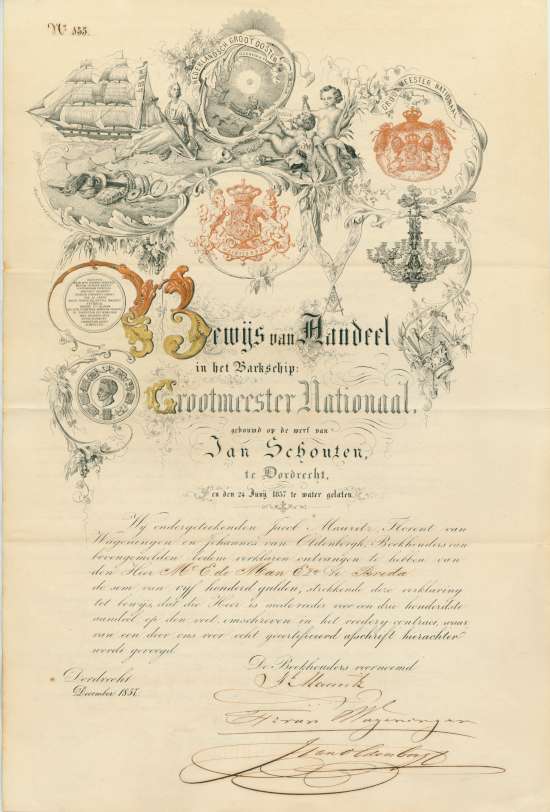 No 155.
NEDERLANDSCH GROOT OOSTEN
GROOTMEESTER NATIONAAL
Bewijs van Aandeel
in het Barkschip:
Grootmeester Nationaal,
gebouwd op de werf van
Jan Schouten,
te Dordrecht,
en den 24 Junij 1857 te water gelaten.
Wij ondergeteekenden Jacob Mauritz, Florent van
Wageningen en Johannes van Oldenborgh, Boekhouders van
bovengemelden bodem verklaren ontvangen te hebben van
den Heer Mr E. de Man Ezn te Breda
de som van vijf honderd gulden, strekkende deze verklaring
tot bewijs, dat die Heer is mede reder voor een drie honderdste
aandeel op den voet omschreven in het reederij contract, waar
van een door ons voor echt gecertificeerd afschrift hierachter
wordt gevoegd.
De Boekhouders voornoemd
Dordrecht
December 1857.